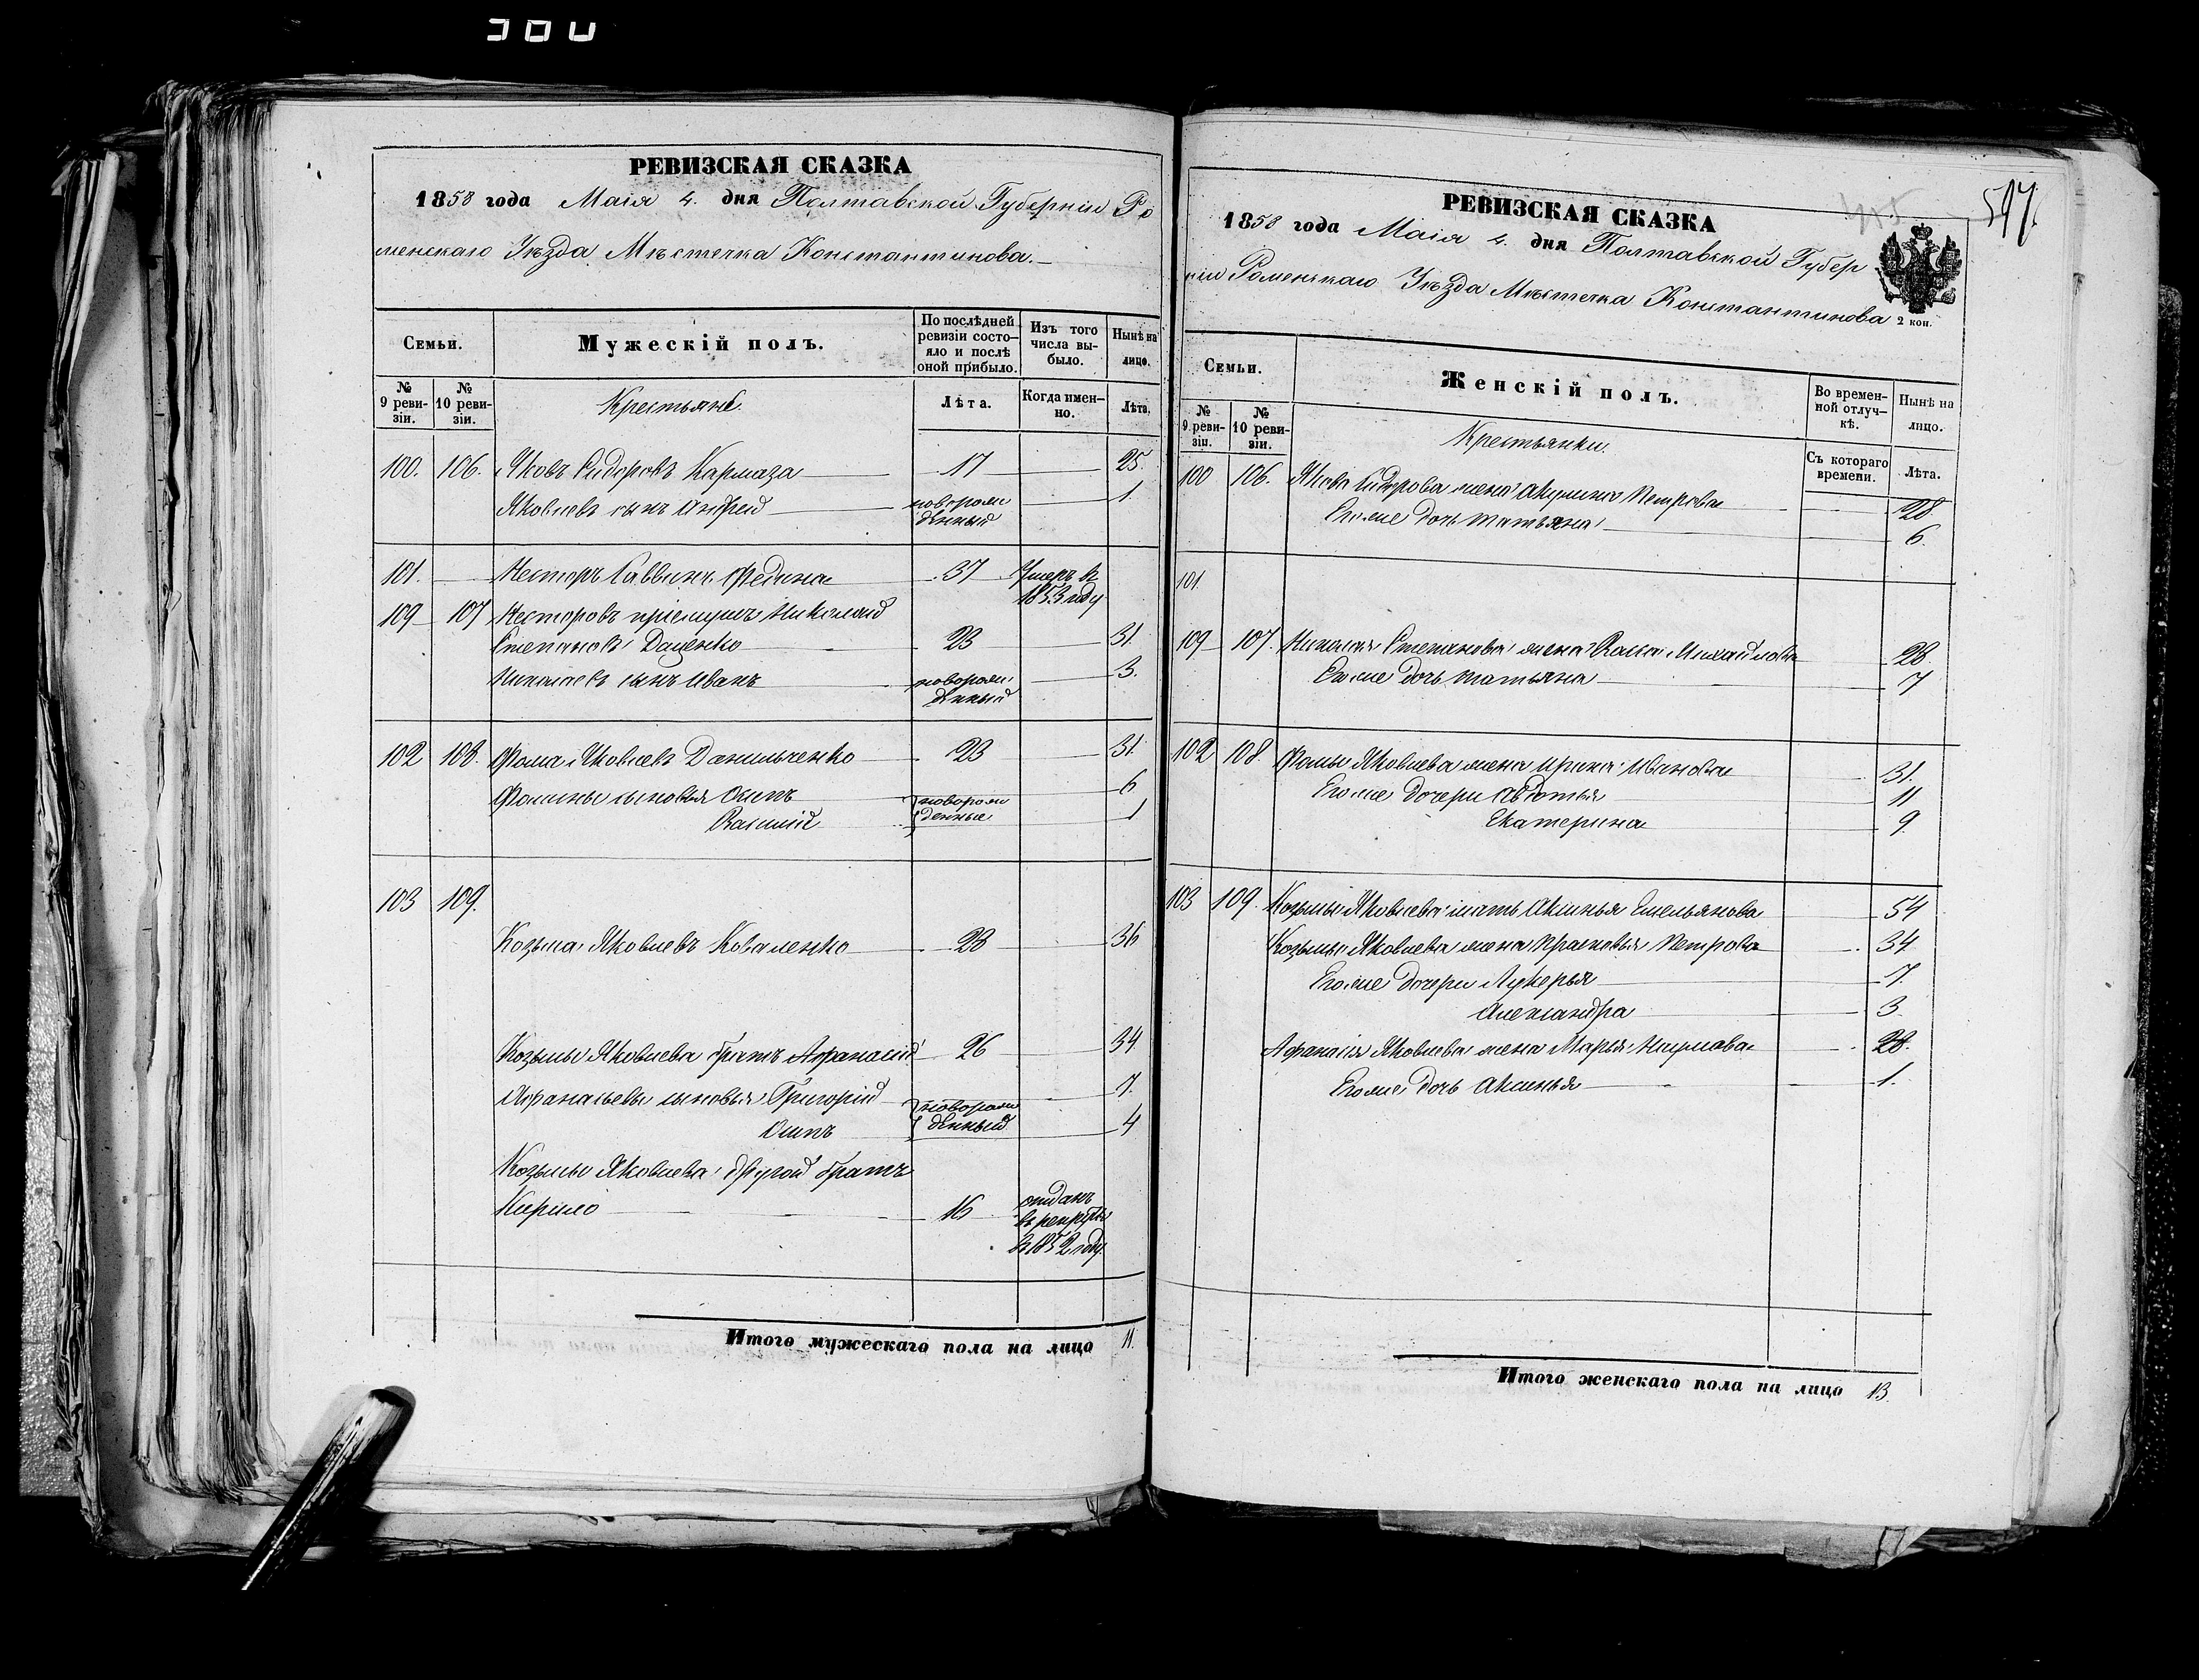 РЕВИЗСКАЯ СКАЗКА
1858 года Маія 4. дня Полтавской Губерніи Ро
менскаго Уѣзда Мѣстечка Константинова.
Семьи.
Мужескій полъ.
По послѣдней ревизіи состо-яло и послѣ оной прибыло.
Изъ того числа вы-было.
Нынѣ на лицо.
№ 9 реви-зіи.
№ 10 реви-зіи.
Крестьяне.
Лѣта.
Когда имен-но.
Лѣта.
100. 106. Яковъ Сидоровъ Кармаза 17 25.
Яковлевъ сынъ Андрей новорож денный 1.
101. Несторъ Саввинъ Федина 37 Умеръ в 1853 году
109 107 Несторовъ пріемышъ Николай
Степановъ Даценко 23 31.
Николаевъ сынъ Иванъ новорож денный 3.
102 108. Фома Яковлевъ Данильченко 23 31.
Фомины сыновья Осипъ новорож 6
Василій денные 1
103 109.
Козьма Яковлевъ Коваленко 28 36
Козьмы Яковлева братъ Афанасій 26 34
Афанасьевы сыновья Григорій новорож 7.
Осипъ денный 4
Козьмы Яковлева другой братъ
Кирило 16 отданъ в рекруты в 1852 году
Итого мужескаго пола на лицо 11.
597.
РЕВИЗСКАЯ СКАЗКА
1858 года Маія 4. дня Полтавской Губер
ніи Роменскаго Уѣзда Мѣстечка Константинова
2 коп.
Семьи.
Женскій полъ.
Во времен-ной отлуч-кѣ.
Нынѣ на лицо.
№ 9 реви-зіи.
№ 10 реви-зіи.
Крестьянки.
Съ котораго времени.
Лѣта.
100 106. Якова Сидорова жена Акулина Петрова 28.
Его же дочь Татьяна 6.
101.
109 107. Николая Степанова жена Михайлова 28
Его же дочь Татьяна 7
102 108. Фомы Яковлева жена Ирина Иванова 31.
Его же дочери Авдотья 11
Екатерина 9.
103 109. Козьмы Яковлева мать Аксинья Емельянова 54
Козьмы Яковлева жена Прасковья Петрова 34
Его же дочери Лукерья 7.
Александра 3.
Афанасія Яковлева жена Марья Наумова 28.
Его же дочь Аксинья 1.
Итого женскаго пола на лицо 13.